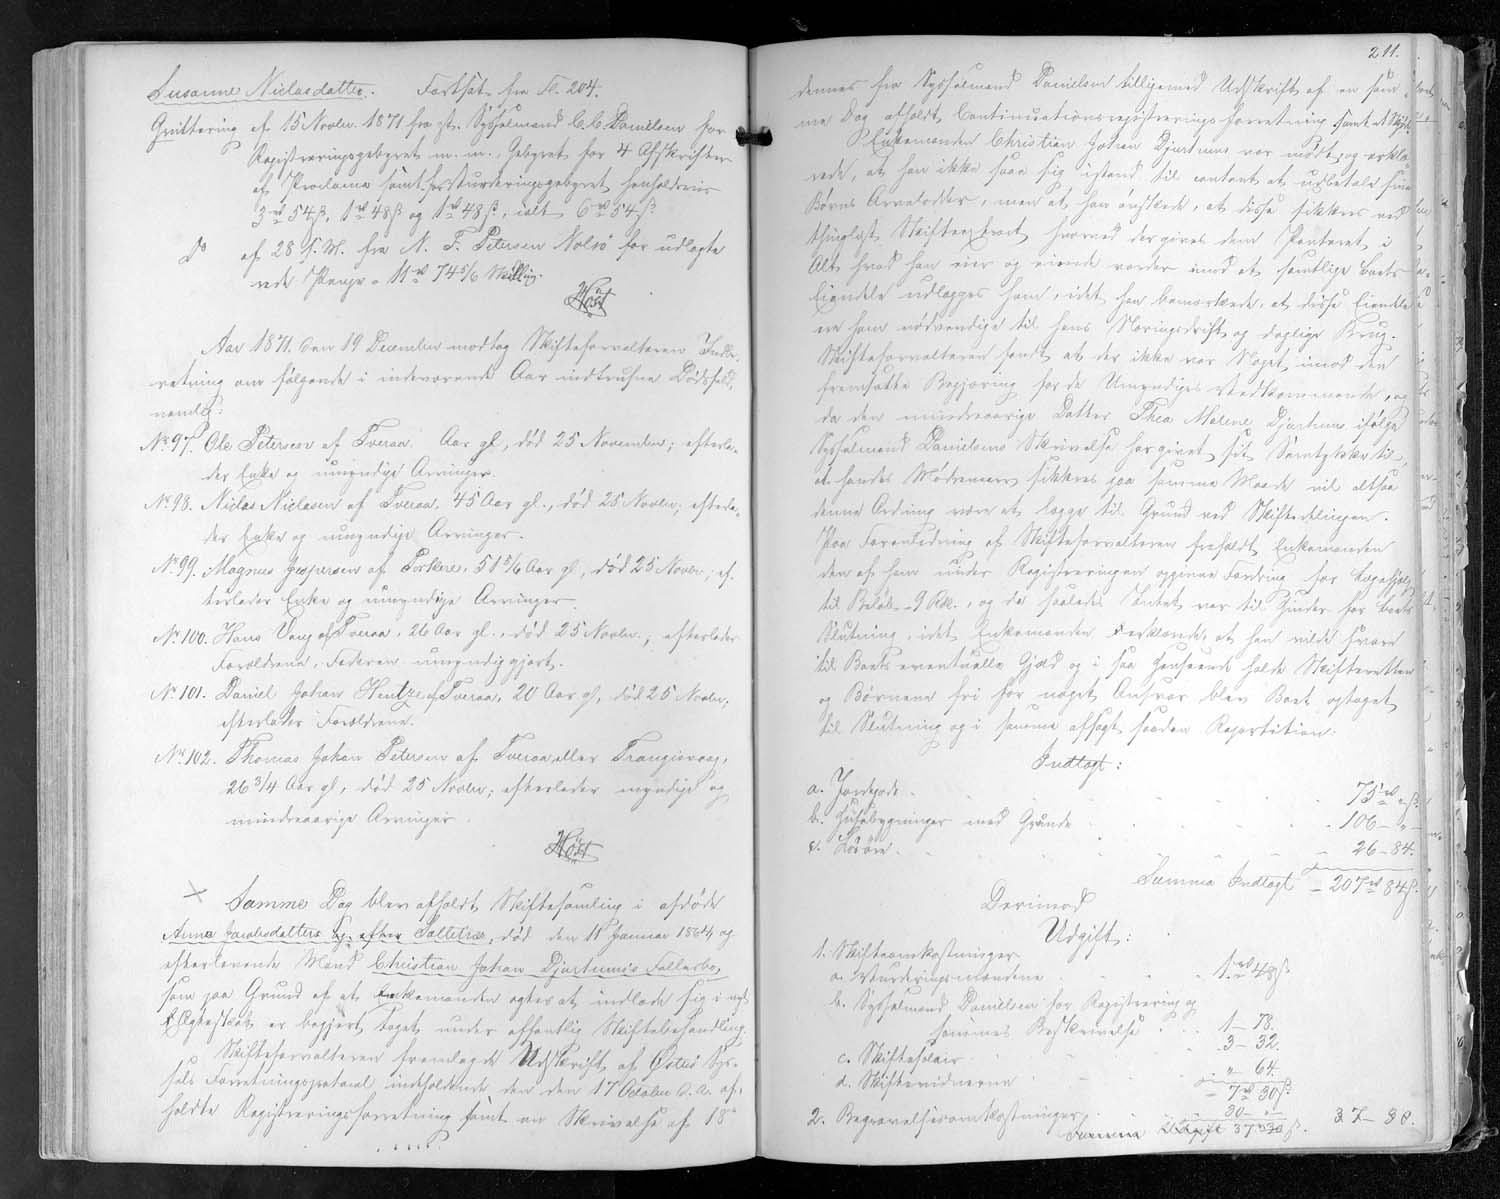 Susanne Niclasdatter. Fortsat fra Fl. 204.
Qvittering af 15 Novbr. 1871 fra pt. Sysselmand C. C. Danielsen for
Registreringsgebyret m. m., Gebyret for 4 Afskrifter
af Proclama samt for Vurderingsgebyret henholdsvis
3 rd 54 ß, 1 rd 48 ß og 1 rd 48 ß, ialt 6 rd 54 ß
Do af 28 s. M. fra N. F. Petersen Nolsö for udlagte
rede Penge - 11 rd 74 5/6 Skilling.
Höst
Aar 1871 den 19 December modtog Skifteforvalteren Indbe-
retning om følgende i indeværende Aar indtrufne Dødsfald,
nemlig:
No. 97. Ole Petersen af Tveraa, Aar gl., død 25 November; efterla-
der Enke og umyndige Arvinger.
No. 98. Niclas Niclasen af Tveraa, 45 Aar gl., død 25 Novbr.; efterla-
der Enke og umyndige Arvinger.
No. 99. Magnus Jespersen af Porkere, 51 5/6 Aar gl., død 25 Novbr.; ef-
terlader Enke og umyndige Arvinger.
No. 100. Hans Vang af Tveraa, 26 Aar gl., død 25 Novbr.; efterlader
Forældrene, Faderen umyndiggjort.
No. 101. Daniel Johan Hentze af Tveraa, 20 Aar gl., død 25 Novbr.
efterlader Forældrene.
No. 102. Thomas Johan Petersen af Tveraa eller Trangisvaag,
26 3/4 Aar gl., død 25 Novbr.; efterlader myndige og
mindreaarige Arvinger.
Höst
Samme Dag blev afholdt Skiftesamling i afdøde
Anna Jacobsdatters Bo efter Selletræ, død den 11 Januar 1864 og
efterlevende Mand Christian Johan Djurhuus's Fællesbo,
som paa Grund af at Enkemanden agter at indlade sig i nyt
Ægteskab er begjert taget under offentlig Skiftebehandling.
Skifteforvalteren fremlagde Udskrift af Østerø Sys-
sels Forretningsprotocol indeholdende den den 17 October d. A. af-
holdte Registreringsforretning samt en Skrivelse af 18de
211.
dennes fra Sysselmand Danielsen tilligemed Udskrift af en sam-
me Dag afholdt Continuationsregistreringsforretning samt et
Enkemanden Christian Johan Djurhuus var mødt og erklæ-
rede, at han ikke saae sig istand til contant at udbetale sine
Børns Arvelodder, men at han ønskede, at disse sikkres ved
thinglæst Skifteextract hvorved der gives dem Panteret i
Alt hvad han eier og eiende vorder imod at samtlige Boets
Eiendele udlægges ham, idet han bemærkede, at disse Eiendele
ere ham nødvendige til hans Næringsdrift og daglige Brug.
Skifteforvalteren fandt at der ikke var Noget imod den
fremsatte Begjæring for de Umyndiges Vedkommende, og
da den mindreaarige Datter Thea Malene Djurhuus ifølge
Sysselmand Danielsens Skrivelse har givet sit Samtykke til,
at hendes Mødrenearv sikkres paa samme Maade vil altsaa
denne Ordning være at lægge til Grund ved Skiftedelingen.
Paa Foranledning af Skifteforvalteren frafaldt Enkemanden
den af ham under Registreringen opgivne Fordring for Lægehjælp
til Beløb - 9 Rd., og da saaledes Intet var til Hinder for Boets
Slutning, idet Enkemanden erklærede, at han vilde svare
til Boets eventuelle Gjæld og i saa Henseende holde Skifteretten
og Børnene fri for noget Ansvar, blev Boet optaget
til Slutning og i samme afsagt saadan Repartition:
Indtægt:
a. Jordegods 75 rd " ß.
b. Huusbygninger med Grunde 106 - " -
c. Løsøre 26 - 84.
Summa Indtægt - 207 rd 84 ß.
Derimod
Udgift:
1. Skifteomkostninger
a. Vurderingsmændene 1 rd 48 ß
b. Sysselmand Danielsen for Registrering og
sammes Beskrivelse 1 - 78.
c. Skiftesalair 3 - 32.
d. Skiftevidnerne " 64.
- 7 rd 30 ß.
2. Begravelsesomkostninger 30 - " -
Summa Udgift 37 rd 30 ß. 37 - 30.